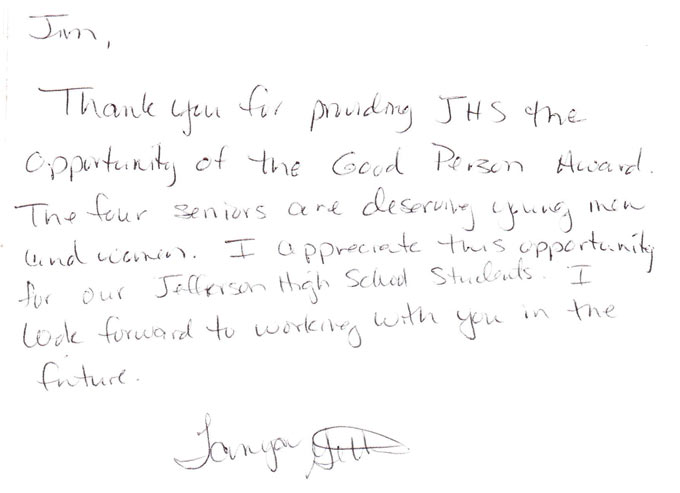 Jim,
Thank you for providing JHS the
opportunity of the Good Person Award.
The four seniors are deserving young men
and women. I appreciate this opportunity
for our Jefferson High School Students. I
look forward to working with you in the
future.
Tanya